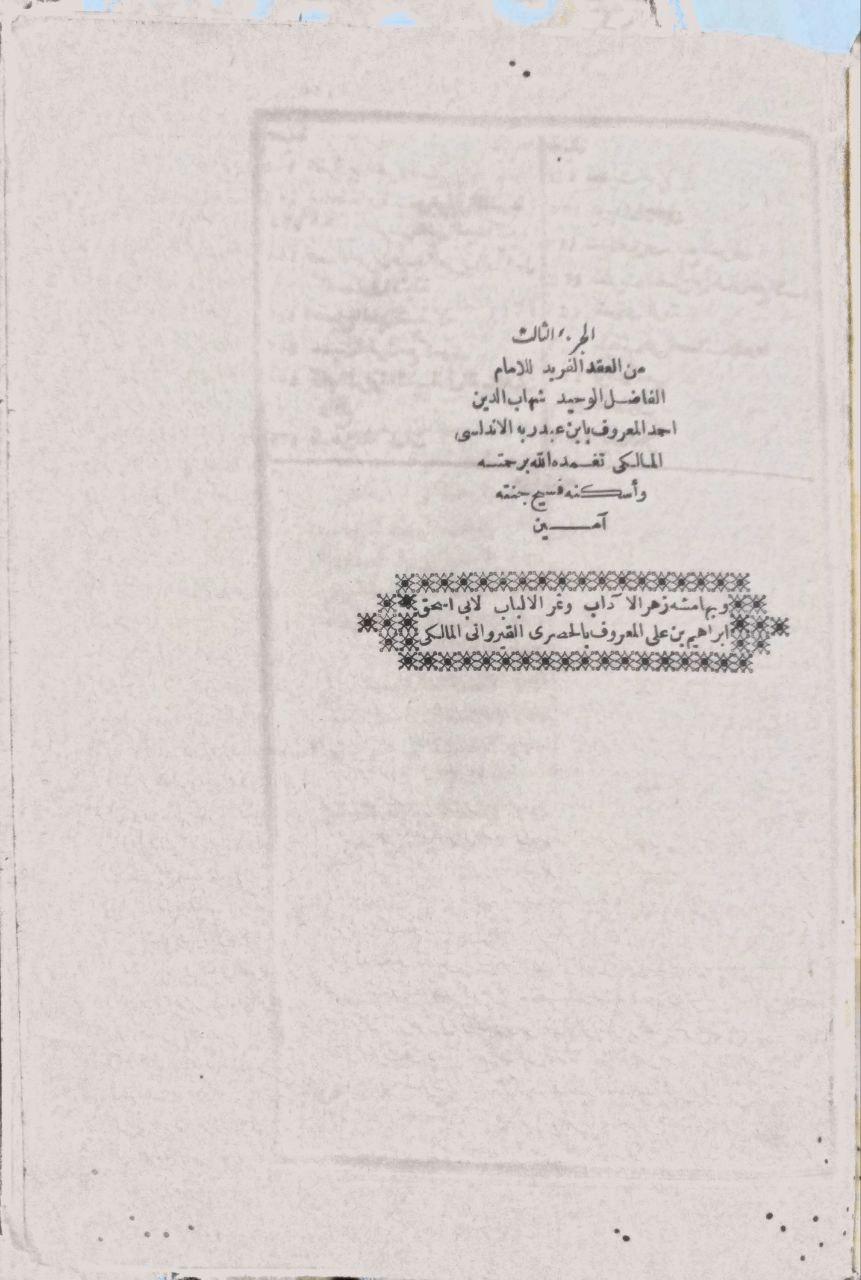 الجزء الثالث
من العقد الفريد للامام
الفاضل الوحيد شهاب الدين
احمد المعروف بابن عبدربه الاندلسى
المالكى تغمده الله برحمته
وأسكنه فسيح جنته
آمين
وبهامشه زهر الآداب وثمر الالباب لابى اسحق
ابراهيم بن على المعروف بالحصرى القيروانى المالكى